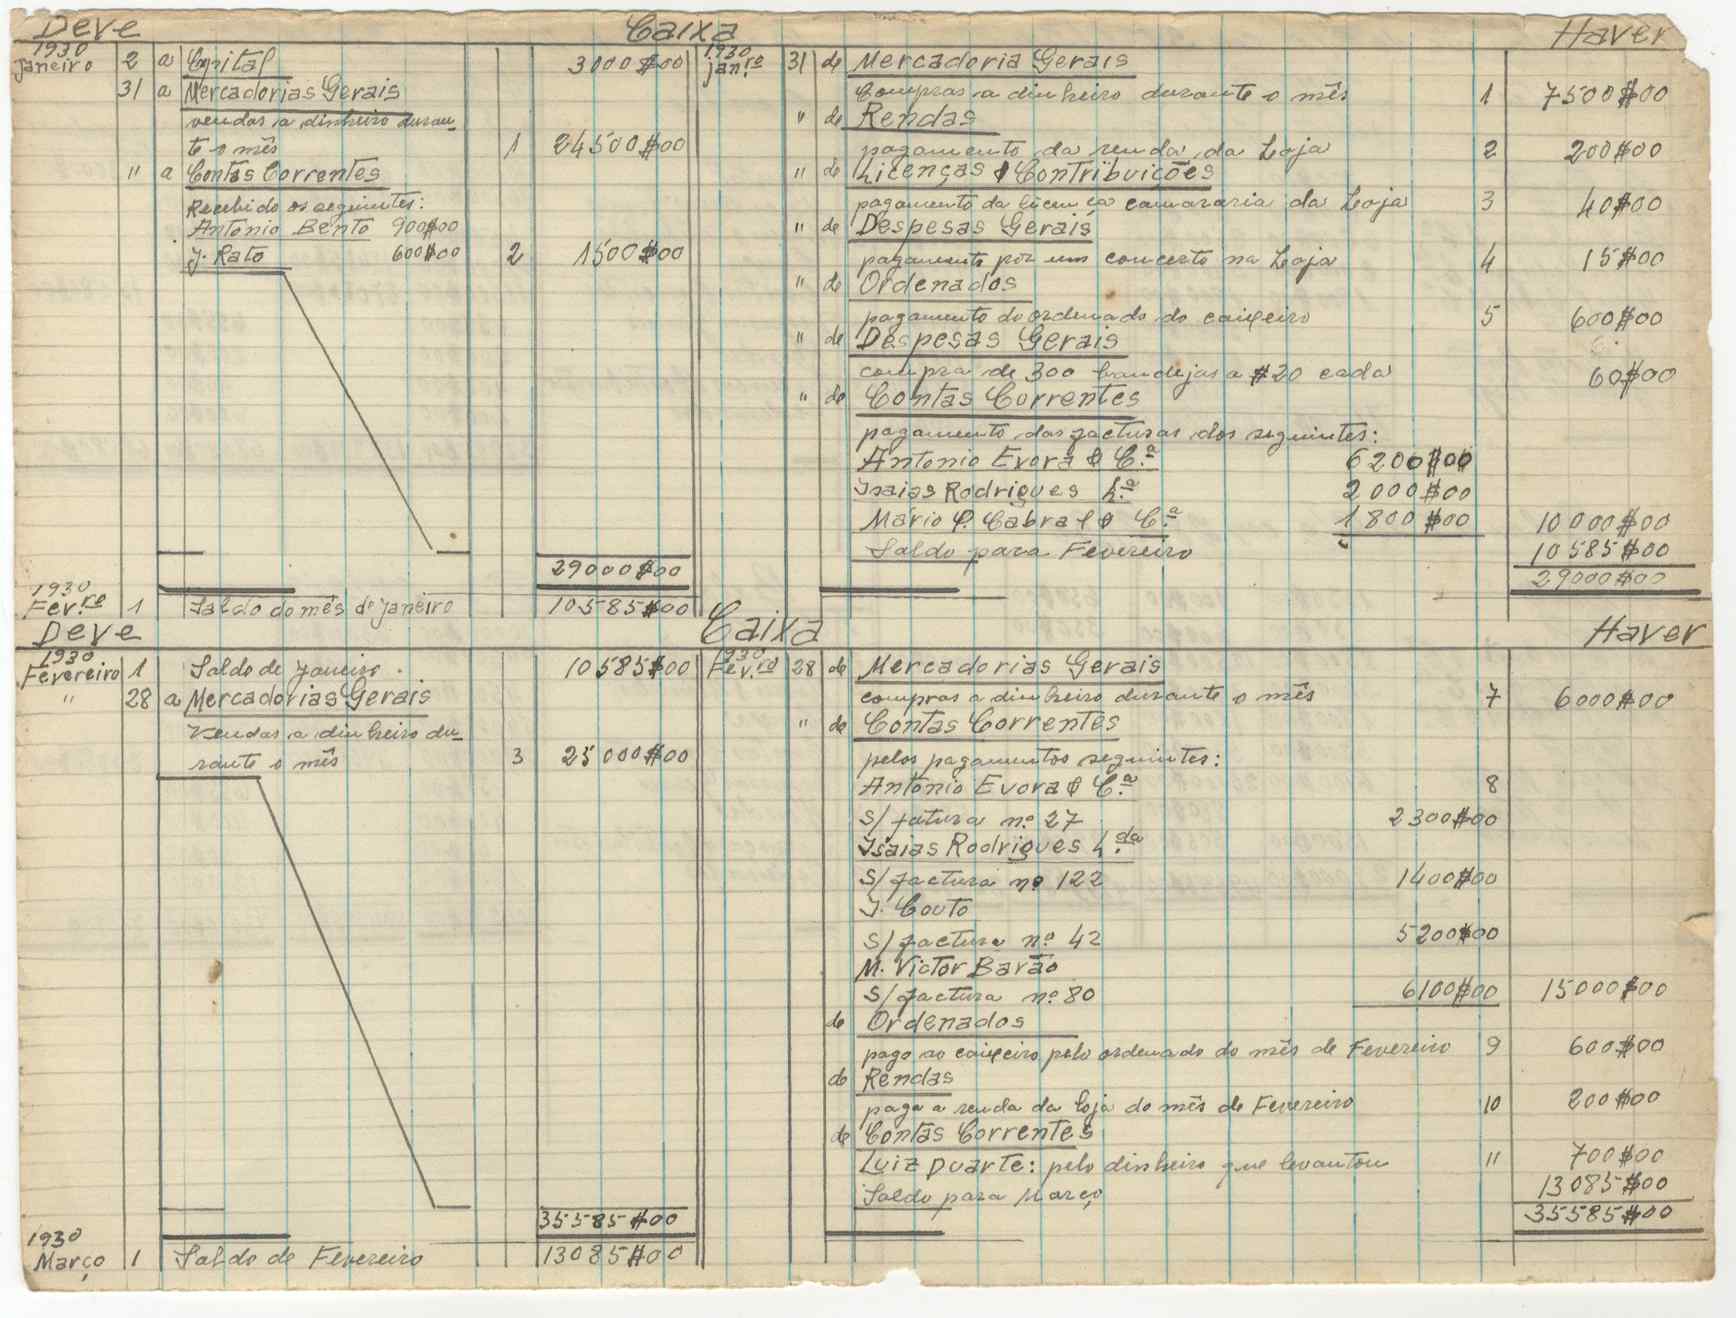 Deve Caixa Haver
1930
Janeiro 2 a Capital 3000$00
31 a Mercadorias Gerais
vendas a dinheiro duran-
te o mês 1 24500$00
" a Contas Correntes
Recebido os seguintes:
Antonio Bento 900$00
J. Rato 600$00 2 1500$00
29000$00
1930
Fev.ro 1 Saldo do mês de Janeiro 10585$00
1930
Jan.ro 31 de Mercadoria Gerais
Compras a dinheiro durante o mês 1 7500$00
" de Rendas
pagamento da renda da Loja 2 200$00
" de Licenças & Contribuições
pagamento da licença camararia da Loja 3 40$00
" de Despesas Gerais
pagamento por um concerto na Loja 4 15$00
" de Ordenados
pagamento do ordenado do caixeiro 5 600$00
" de Despesas Gerais
compra de 300 bandejas a $20 cada 60$00
" de Contas Correntes
pagamento das facturas dos seguintes:
Antonio Evora & C.ª 6200$00
Isaias Rodrigues L.ª 2000$00
Mário P. Cabral & C.ª 1800$00 10000$00
Saldo para Fevereiro 10585$00
29000$00
Deve Caixa Haver
1930
Fevereiro 1 Saldo de Janeiro. 10585$00
" 28 a Mercadorias Gerais
Vendas a dinheiro du-
rante o mês 3 25000$00
35585$00
1930
Março 1 Saldo de Fevereiro 13085$00
1930
Fev.ro 28 de Mercadorias Gerais
compras a dinheiro durante o mês 7 6000$00
" de Contas Correntes
pelos pagamentos seguintes:
Antonio Evora & C.ª 8
S/ fatura nº 27 2300$00
Isaias Rodrigues L.da
S/ factura nº 122 1400$00
J. Couto
S/ factura nº 42 5200$00
M. Victor Barão
S/ factura nº 80 6100$00 15000$00
de Ordenados
pago ao caixeiro pelo ordenado do mês de Fevereiro 9 600$00
de Rendas
paga a renda da loja do mês de Fevereiro 10 200$00
de Contas Correntes
Luiz Duarte: pelo dinheiro que levantou 11 700$00
Saldo para Março 13085$00
35585$00